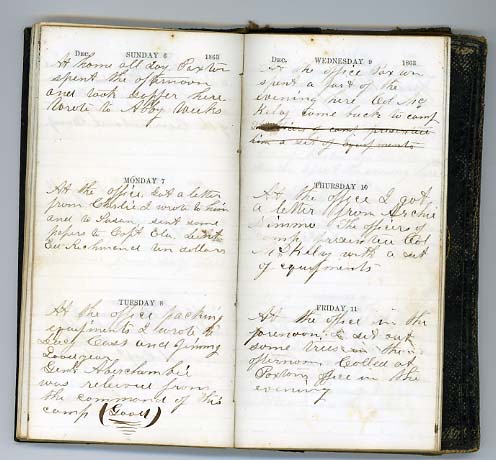 DEC. SUNDAY 6 1863
At home all day Paxton
spent the afternoon
and took supper here
wrote to Abby Weeks
MONDAY 7
At the office Got a letter
from Charlie I wrote to him
and to Susan, sent some
papers to Capt Ela. Lent
Ed Richmond ten dollars
TUESDAY 8
At the office packing
equipments I wrote to
Lucy Cass and Jimmy
Lovejoy
Genl Abercrombie
was relieved from
the command of this
camp (Good)
DEC. WEDNESDAY 9 1863
At the office Paxton
spent a part of the
evening here, Col Mc
Kelvy came back to camp
The officers of camp presented
him a set of equipments
THURSDAY 10
At the office I got
a letter from Archie
Simmo The officers of
camp presented Col
McKelvy with a set
of equipments
FRIDAY 11
At the office in the
forenoon, I set out
some trees in the
afternoon. Called at
Paxtons office in the
evening